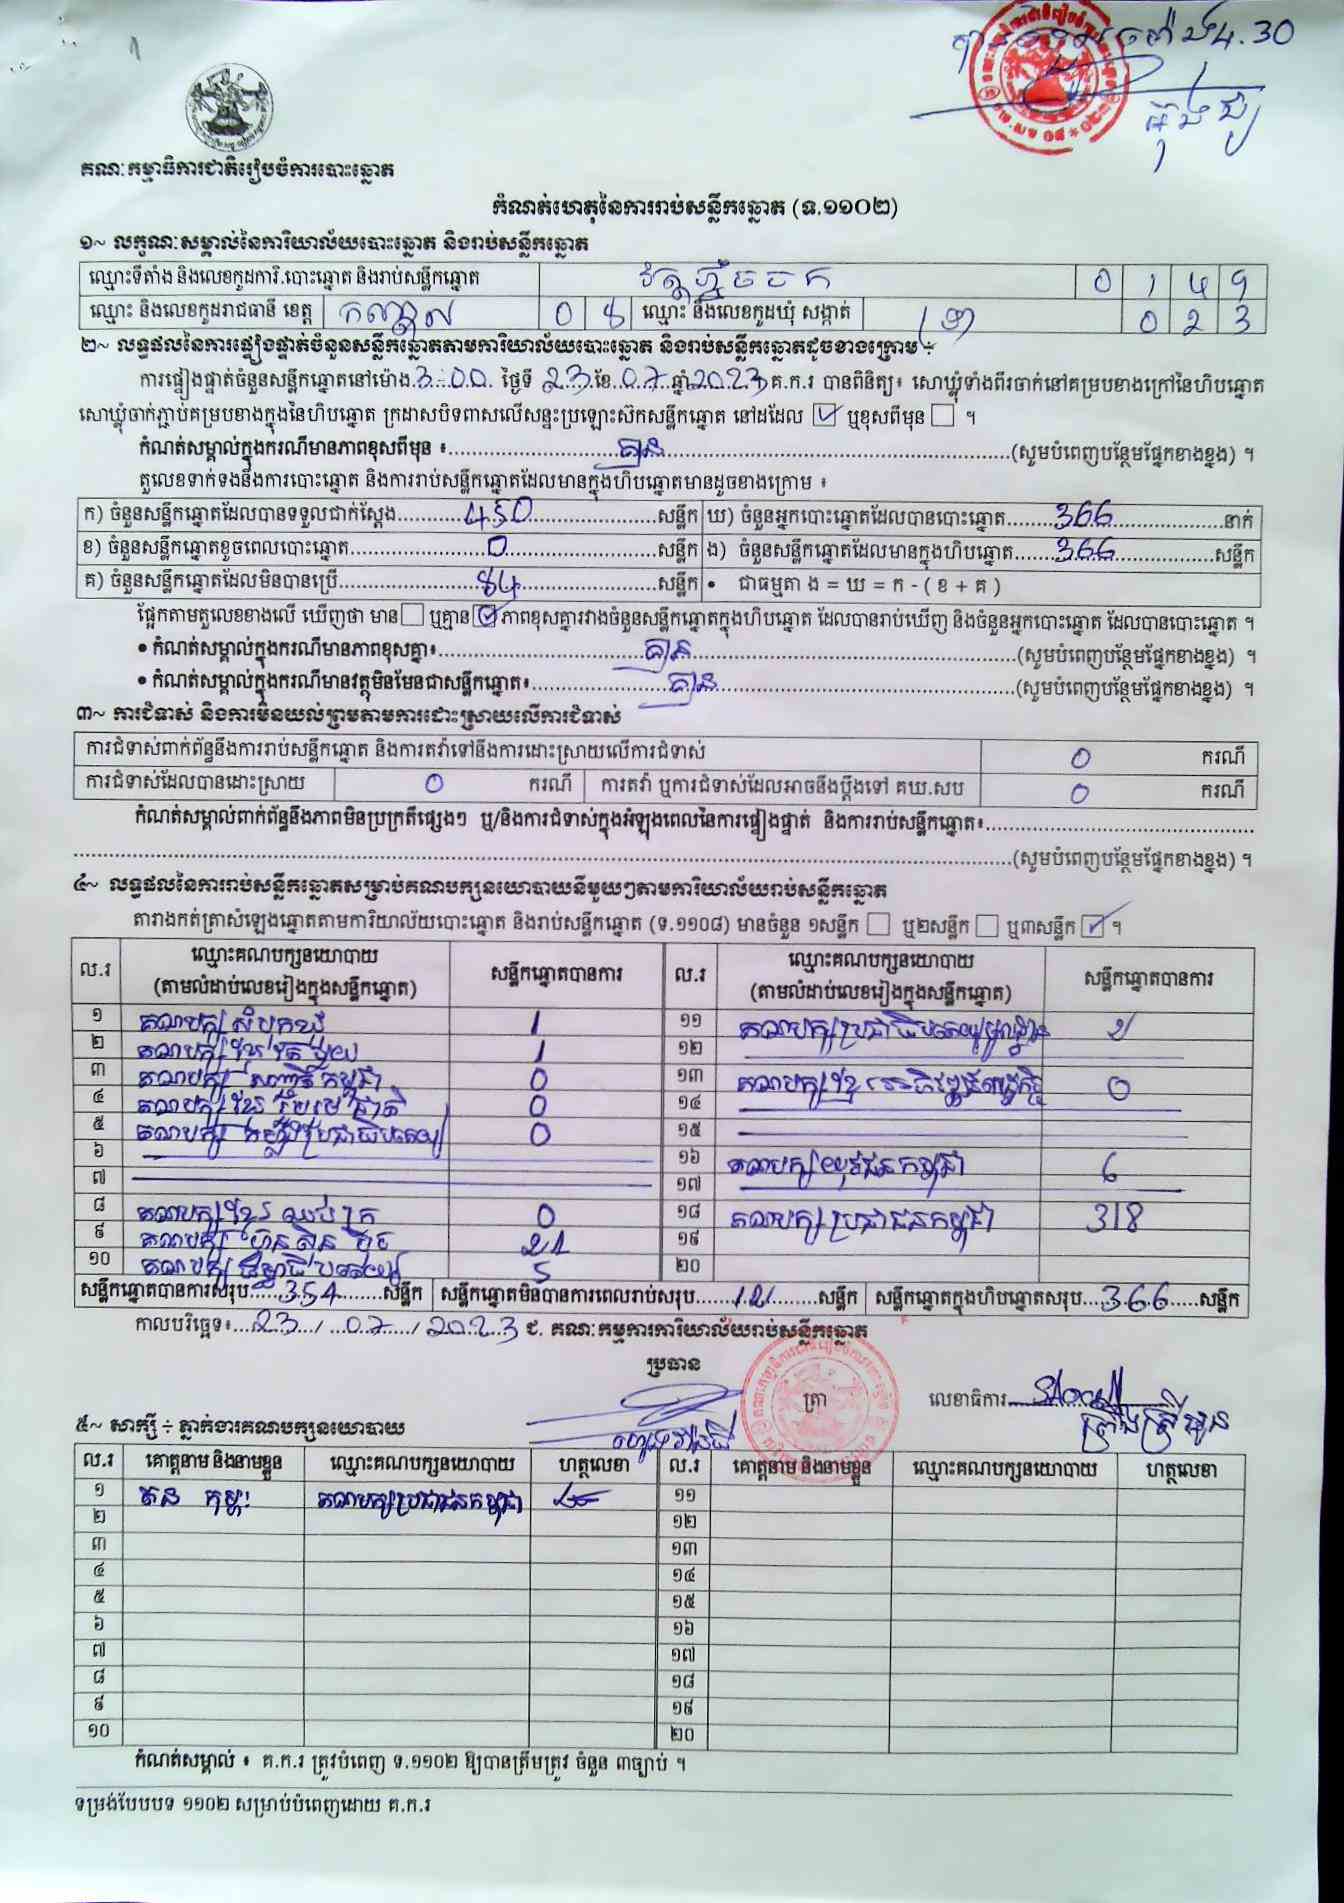 4.30
គណៈកម្មាធិការជាតិរៀបចំការបោះឆ្នោត
កំណត់ហេតុនៃការរាប់សន្លឹកឆ្នោត (ទ.១១០២)
១~ លក្ខណៈសម្គាល់នៃការិយាល័យបោះឆ្នោត និងរាប់សន្លឹកឆ្នោត
ឈ្មោះទីតាំង និងលេខកូដការិ.បោះឆ្នោត និងរាប់សន្លឹកឆ្នោត 0 1 4 9
ឈ្មោះ និងលេខកូដរាជធានី ខេត្ត កណ្តាល 0 8 ឈ្មោះ និងលេខកូដឃុំ សង្កាត់ 0 2 3
២~ លទ្ធផលនៃការផ្ទៀងផ្ទាត់ចំនួនសន្លឹកឆ្នោតតាមការិយាល័យបោះឆ្នោត និងរាប់សន្លឹកឆ្នោតដូចខាងក្រោម ÷
ការផ្ទៀងផ្ទាត់ចំនួនសន្លឹកឆ្នោតនៅម៉ោង 3:00 ថ្ងៃទី 23 ខែ 07 ឆ្នាំ 2023 គ.ក.រ បានពិនិត្យ៖ សោឃ្លុំទាំងពីរចាក់នៅគម្របខាងក្រៅនៃហិបឆ្នោត
សោឃ្លុំចាក់ភ្ជាប់គម្របខាងក្នុងនៃហិបឆ្នោត ក្រដាសបិទពាសលើសន្ទះប្រឡោះស៊កសន្លឹកឆ្នោត នៅដដែល ☑ ឬខុសពីមុន ☐ ។
កំណត់សម្គាល់ក្នុងករណីមានភាពខុសពីមុន ៖ គ្មាន (សូមបំពេញបន្ថែមផ្នែកខាងខ្នង) ។
តួលេខទាក់ទងនឹងការបោះឆ្នោត និងការរាប់សន្លឹកឆ្នោតដែលមានក្នុងហិបឆ្នោតមានដូចខាងក្រោម ៖
ក) ចំនួនសន្លឹកឆ្នោតដែលបានទទួលជាក់ស្តែង 450 សន្លឹក ឃ) ចំនួនអ្នកបោះឆ្នោតដែលបានបោះឆ្នោត 366 នាក់
ខ) ចំនួនសន្លឹកឆ្នោតខូចពេលបោះឆ្នោត 0 សន្លឹក ង) ចំនួនសន្លឹកឆ្នោតដែលមានក្នុងហិបឆ្នោត 366 សន្លឹក
គ) ចំនួនសន្លឹកឆ្នោតដែលមិនបានប្រើ 84 សន្លឹក • ជាធម្មតា ង = ឃ = ក - ( ខ + គ )
ផ្អែកតាមតួលេខខាងលើ ឃើញថា មាន ☐ ឬគ្មាន ☑ ភាពខុសគ្នារវាងចំនួនសន្លឹកឆ្នោតក្នុងហិបឆ្នោត ដែលបានរាប់ឃើញ និងចំនួនអ្នកបោះឆ្នោត ដែលបានបោះឆ្នោត ។
• កំណត់សម្គាល់ក្នុងករណីមានភាពខុសគ្នា៖ គ្មាន (សូមបំពេញបន្ថែមផ្នែកខាងខ្នង) ។
• កំណត់សម្គាល់ក្នុងករណីមានវត្ថុមិនមែនជាសន្លឹកឆ្នោត៖ គ្មាន (សូមបំពេញបន្ថែមផ្នែកខាងខ្នង) ។
៣~ ការជំទាស់ និងការមិនយល់ព្រមតាមការដោះស្រាយលើការជំទាស់
ការជំទាស់ពាក់ព័ន្ធនឹងការរាប់សន្លឹកឆ្នោត និងការតវ៉ាទៅនឹងការដោះស្រាយលើការជំទាស់ 0 ករណី
ការជំទាស់ដែលបានដោះស្រាយ 0 ករណី ការតវ៉ា ឬការជំទាស់ដែលអាចនឹងប្តឹងទៅ គឃ.សប 0 ករណី
កំណត់សម្គាល់ពាក់ព័ន្ធនឹងភាពមិនប្រក្រតីផ្សេងៗ ឬ/និងការជំទាស់ក្នុងអំឡុងពេលនៃការផ្ទៀងផ្ទាត់ និងការរាប់សន្លឹកឆ្នោត៖
(សូមបំពេញបន្ថែមផ្នែកខាងខ្នង) ។
៤~ លទ្ធផលនៃការរាប់សន្លឹកឆ្នោតសម្រាប់គណបក្សនយោបាយនីមួយៗតាមការិយាល័យរាប់សន្លឹកឆ្នោត
តារាងកត់ត្រាសំឡេងឆ្នោតតាមការិយាល័យបោះឆ្នោត និងរាប់សន្លឹកឆ្នោត (ទ.១១០៨) មានចំនួន ១សន្លឹក ☐ ឬ២សន្លឹក ☐ ឬ៣សន្លឹក ☑ ។
ល.រ ឈ្មោះគណបក្សនយោបាយ (តាមលំដាប់លេខរៀងក្នុងសន្លឹកឆ្នោត) សន្លឹកឆ្នោតបានការ ល.រ ឈ្មោះគណបក្សនយោបាយ (តាមលំដាប់លេខរៀងក្នុងសន្លឹកឆ្នោត) សន្លឹកឆ្នោតបានការ
១ គណបក្ស 1 ១១ គណបក្សប្រជាធិបតេយ្យមូលដ្ឋាន 2
២ គណបក្សខ្មែរតែមួយ 1 ១២
៣ គណបក្ស សញ្ជាតិកម្ពុជា 0 ១៣ គណបក្សខ្មែរអភិវឌ្ឍន៍សេដ្ឋកិច្ច 0
៤ គណបក្សខ្មែររួបរួមជាតិ 0 ១៤
៥ គណបក្ស កម្លាំងប្រជាធិបតេយ្យ 0 ១៥
៦ ១៦ គណបក្សយុវជនកម្ពុជា 6
៧ ១៧
៨ គណបក្សខ្មែរឈប់ក្រ 0 ១៨ គណបក្សប្រជាជនកម្ពុជា 318
៩ គណបក្សហ្វ៊ុនស៊ិនប៉ិច 21 ១៩
១០ គណបក្ស ធម្មាធិបតេយ្យ 5 ២០
សន្លឹកឆ្នោតបានការសរុប 354 សន្លឹក សន្លឹកឆ្នោតមិនបានការពេលរាប់សរុប 12 សន្លឹក សន្លឹកឆ្នោតក្នុងហិបឆ្នោតសរុប 366 សន្លឹក
កាលបរិច្ឆេទ៖ 23 / 07 / 2023 ជ. គណៈកម្មការការិយាល័យរាប់សន្លឹកឆ្នោត
ប្រធាន
ត្រា លេខាធិការ
៥~ សាក្សី ÷ ភ្នាក់ងារគណបក្សនយោបាយ
ល.រ គោត្តនាម និងនាមខ្លួន ឈ្មោះគណបក្សនយោបាយ ហត្ថលេខា ល.រ គោត្តនាម និងនាមខ្លួន ឈ្មោះគណបក្សនយោបាយ ហត្ថលេខា
១ គណបក្សប្រជាជនកម្ពុជា ១១
២ ១២
៣ ១៣
៤ ១៤
៥ ១៥
៦ ១៦
៧ ១៧
៨ ១៨
៩ ១៩
១០ ២០
កំណត់សម្គាល់ ៖ គ.ក.រ ត្រូវបំពេញ ទ.១១០២ ឱ្យបានត្រឹមត្រូវ ចំនួន ៣ច្បាប់ ។
ទម្រង់បែបបទ ១១០២ សម្រាប់បំពេញដោយ គ.ក.រ